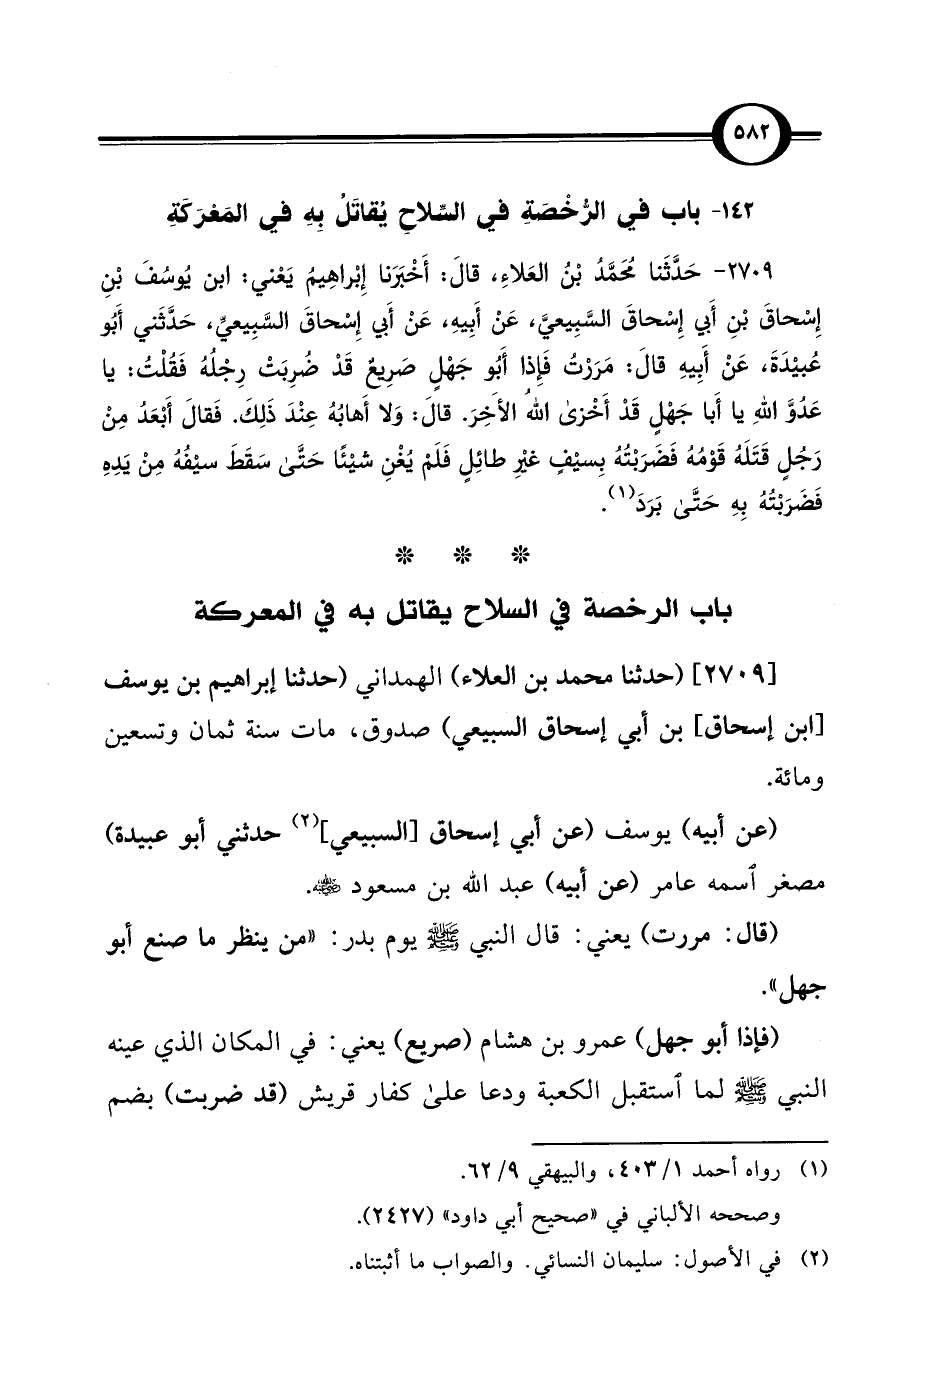 ٥٨٢
١٤٢- باب في الرُّخْصَةِ في السِّلاحِ يُقاتَلُ بِهِ في المَعْرَكَةِ
٢٧٠٩- حَدَّثَنا مُحَمَّدُ بْنُ العَلاءِ، قالَ: أَخْبَرَنا إِبْراهِيمُ يَعْني: ابن يُوسُفَ بْنِ
إِسْحاقَ بْنِ أَبي إِسْحاقَ السَّبِيعيَّ، عَنْ أَبِيهِ، عَنْ أَبي إِسْحاقَ السَّبِيعيِّ، حَدَّثَني أَبُو
عُبَيْدَةَ، عَنْ أَبِيهِ قالَ: مَرَرْتُ فَإِذا أَبُو جَهْلٍ صَرِيعٌ قَدْ ضُرِبَتْ رِجْلُهُ فَقُلْتُ: يا
عَدُوَّ اللهِ يا أَبا جَهْلٍ قَدْ أَخْزى اللهُ الأَخِرَ. قالَ: وَلا أَهابُهُ عِنْدَ ذَلِكَ. فَقالَ أَبْعَدُ مِنْ
رَجُلٍ قَتَلَهُ قَوْمُهُ فَضَرَبْتُهُ بِسيْفٍ غيْرِ طائِلٍ فَلَمْ يُغْنِ شيْئًا حَتَّى سَقَطَ سيْفُهُ مِنْ يَدِهِ
فَضَرَبْتُهُ بِهِ حَتَّى بَرَدَ(١).
* * *
باب الرخصة في السلاح يقاتل به في المعركة
[٢٧٠٩] (حدثنا محمد بن العلاء) الهمداني (حدثنا إبراهيم بن يوسف
[ابن إسحاق] بن أبي إسحاق السبيعي) صدوق، مات سنة ثمان وتسعين
ومائة.
(عن أبيه) يوسف (عن أبي إسحاق [السبيعي](٢) حدثني أبو عبيدة)
مصغر ٱسمه عامر (عن أبيه) عبد الله بن مسعود رضي الله عنه.
(قال: مررت) يعني: قال النبي ﷺ يوم بدر: «من ينظر ما صنع أبو
جهل».
(فإذا أبو جهل) عمرو بن هشام (صريع) يعني: في المكان الذي عينه
النبي ﷺ لما ٱستقبل الكعبة ودعا علىٰ كفار قريش (قد ضربت) بضم
(١) رواه أحمد ١/ ٤٠٣، والبيهقي ٩/ ٦٢.
وصححه الألباني في «صحيح أبي داود» (٢٤٢٧).
(٢) في الأصول: سليمان النسائي. والصواب ما أثبتناه.